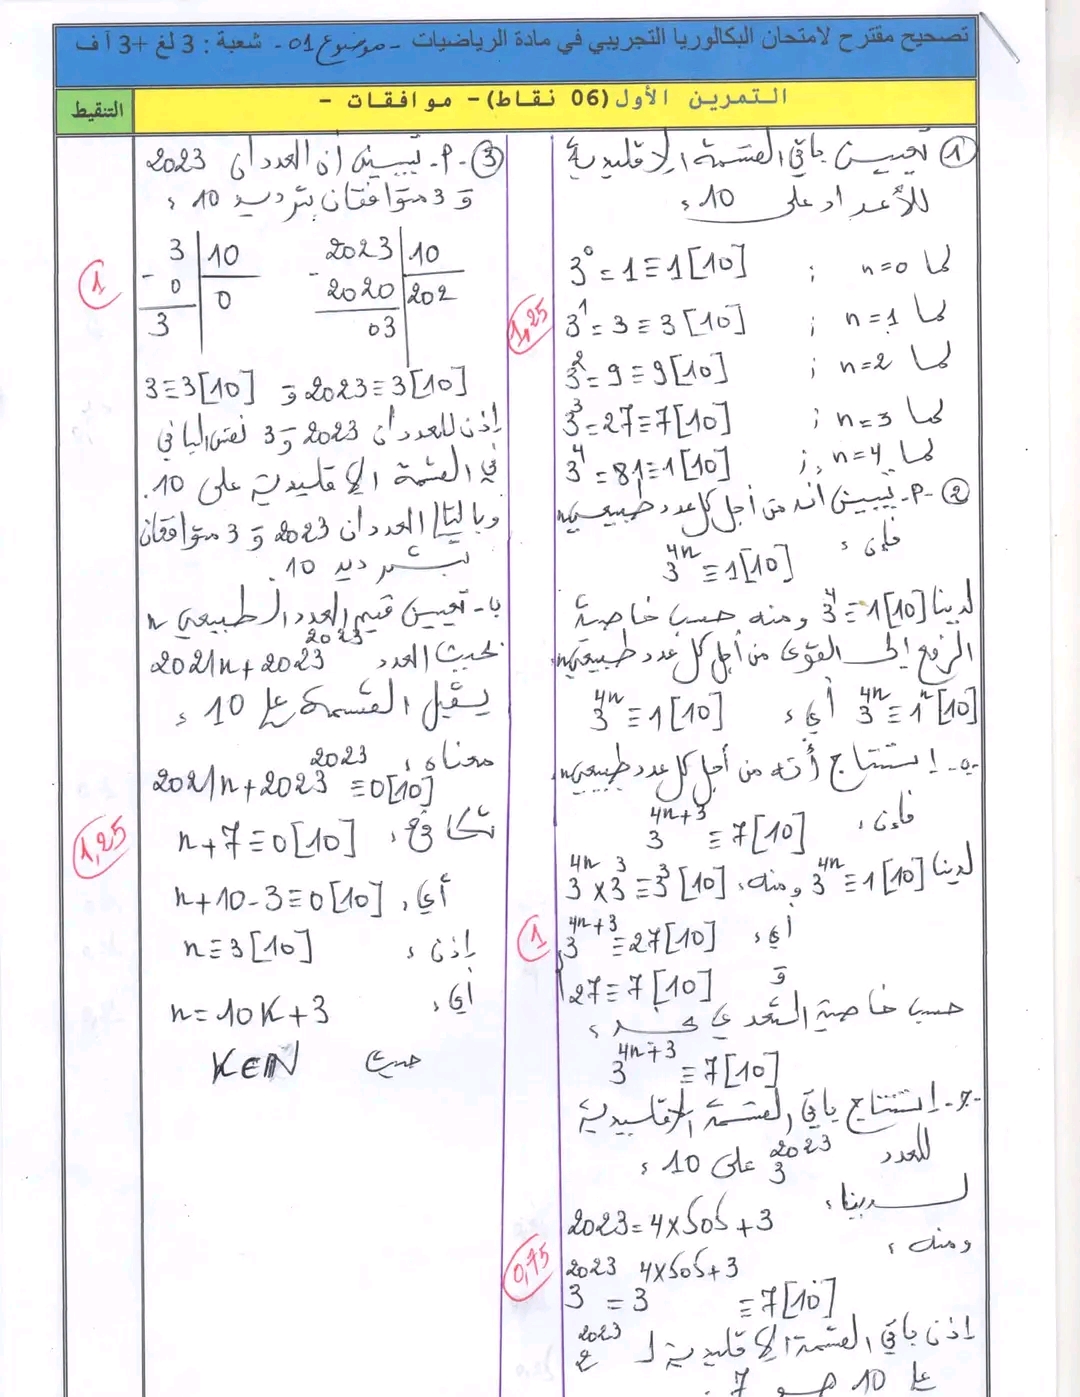 تصحيح مقترح لامتحان البكالوريا التجريبي في مادة الرياضيات - موضوع 01 - شعبة : 3 لغ +3 آ ف
التمرين الأول (06 نقاط) - موافقات -
التنقيط
① تعيين باقي القسمة الإقليدية
للأعداد على 10 :
لما n=0 ; 3^0 = 1 ≡ 1[10]
لما n=1 ; 3^1 = 3 ≡ 3[10]
لما n=2 ; 3^2 = 9 ≡ 9[10]
لما n=3 ; 3^3 = 27 ≡ 7[10]
لما n=4 ; 3^4 = 81 ≡ 1[10]
1,25
② - أ - تبيين أنه من أجل كل عدد طبيعي n
فإن :
3^4n ≡ 1[10]
لدينا 3^4 ≡ 1[10] ومنه حسب خاصية
الرفع إلى القوى من أجل كل عدد طبيعي n
3^4n ≡ 1^n[10] أي : 3^4n ≡ 1[10]
ب - إستنتاج أنه من أجل كل عدد طبيعي n
فإن : 3^4n+3 ≡ 7[10]
لدينا 3^4n ≡ 1[10] ومنه : 3^4n × 3^3 ≡ 3^3[10]
أي : 3^4n+3 ≡ 27[10]
1
و 27 ≡ 7[10]
حسب خاصية التعدي نجد :
3^4n+3 ≡ 7[10]
ج - إستنتاج باقي القسمة الإقليدية
للعدد 3^2023 على 10 :
لدينا :
2023 = 4×505+3
ومنه :
3^2023 = 3^4×505+3 ≡ 7[10]
0,75
إذن باقي القسمة الإقليدية لـ 2^2023
على 10 هو 7 .
③ - أ - تبيين أن العددان 2023
و 3 متوافقان بترديد 10 :
2023 | 10
- 2020 | 202
03
3 | 10
- 0 | 0
3
1
2023 ≡ 3[10] و 3 ≡ 3[10]
إذن للعددان 2023 و 3 نفس الباقي
في القسمة الإقليدية على 10 .
وبالتالي العددان 2023 و 3 متوافقان
بترديد 10 .
ب - تعيين قيم العدد الطبيعي n
بحيث العدد 2021n + 2023^2023
يقبل القسمة على 10 :
معناه : 2021n + 2023^2023 ≡ 0[10]
تكافئ : n + 7 ≡ 0[10]
1,25
أي : n + 10 - 3 ≡ 0[10]
إذن : n ≡ 3[10]
أي : n = 10K + 3
حيث K∈N